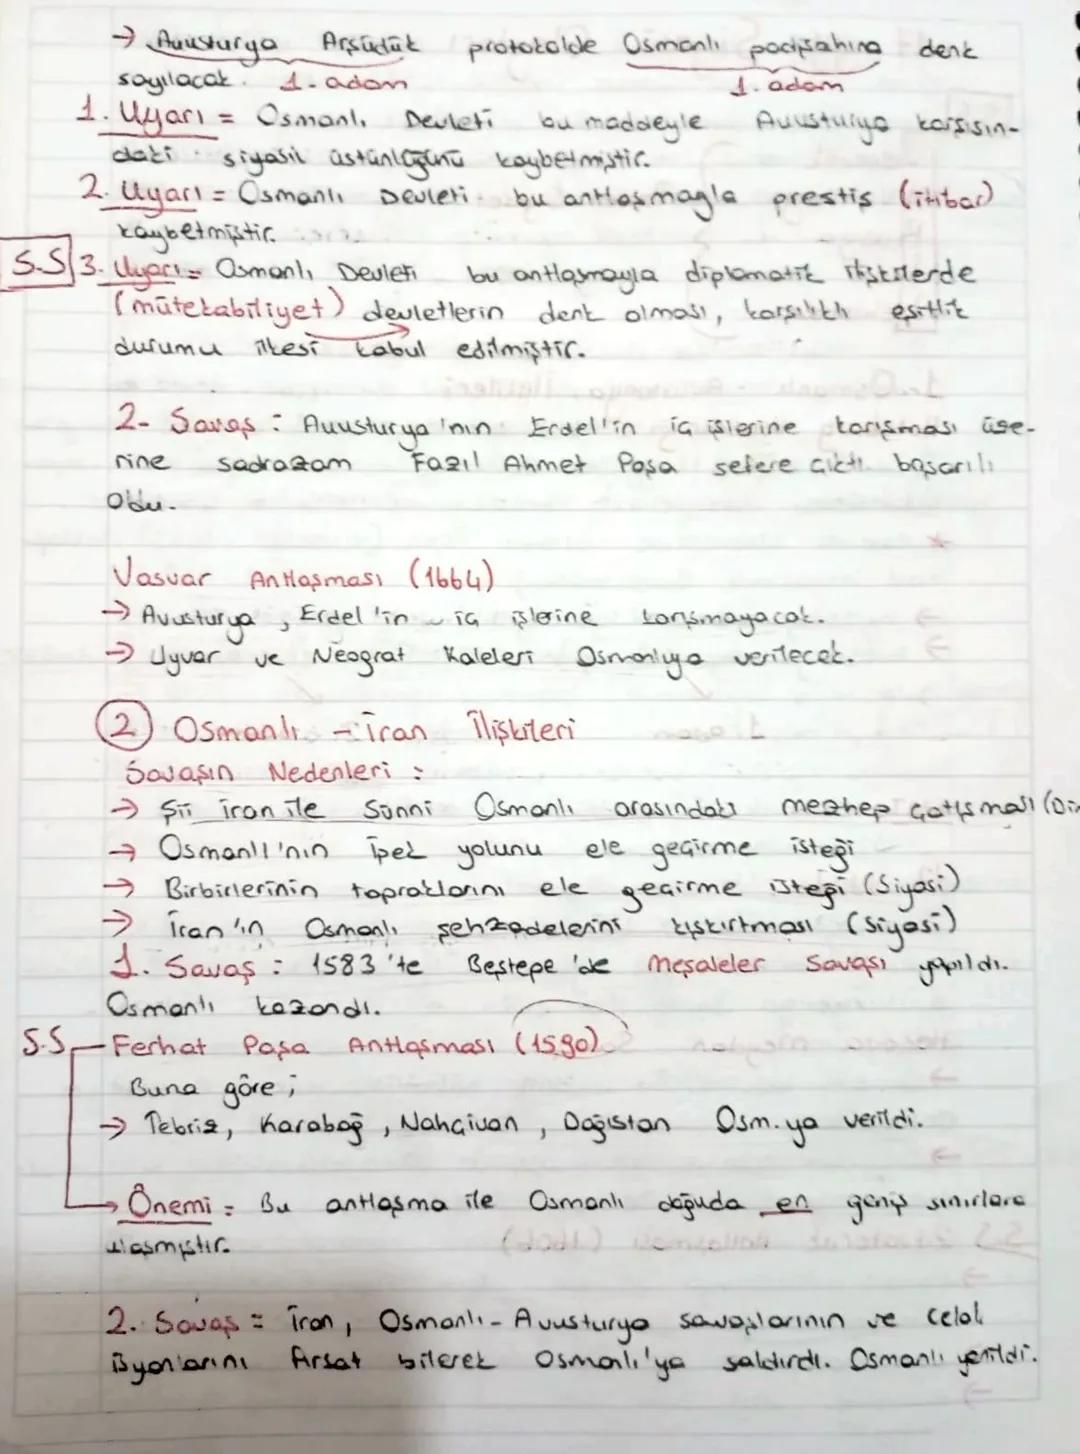 → Avusturya Arşüdük protokolde Osmanlı padişahına denk
sayılacak. 1. adam 1. adam
1. Uyarı = Osmanlı Devleti bu maddeyle Avusturya karşısın-
daki siyasil üstünlüğünü kaybetmiştir.
2. Uyarı = Osmanlı Devleti bu antlaşmayla prestiş (itibar)
kaybetmiştir.
S.S 3. Uyarı = Osmanlı Devleti bu antlaşmayla diplomatik ilişkilerde
(mütekabiliyet) devletlerin denk olması, karşılıklı eşitlik
durumu ilkesi kabul edilmiştir.
2- Savaş : Avusturya'nın Erdel'in iç işlerine karışması üze-
rine sadrazam Fazıl Ahmet Paşa sefere çıktı başarılı
oldu.
Vasvar Antlaşması (1664)
→ Avusturya, Erdel'in iç işlerine karışmayacak.
→ Uyvar ve Neograt Kaleleri Osmanlıya verilecek.
2 Osmanlı - İran İlişkileri
Savaşın Nedenleri :
→ Şii İran ile Sünni Osmanlı arasındaki mezhep çatışması (Din
→ Osmanlı'nın İpek yolunu ele geçirme isteği
→ Birbirlerinin topraklarını ele geçirme isteği (Siyasi)
→ İran'ın Osmanlı şehzadelerini kışkırtması (Siyasi)
1. Savaş : 1583'te Beştepe'de Meşaleler Savaşı yapıldı.
Osmanlı kazandı.
S.S Ferhat Paşa Antlaşması (1590)
Buna göre ;
→ Tebriz, Karabağ, Nahçivan, Dağıstan Osm.ya verildi.
→ Önemi = Bu antlaşma ile Osmanlı doğuda en geniş sınırlara
ulaşmıştır.
2. Savaş = İran, Osmanlı - Avusturya savaşlarının ve celali
isyanlarını fırsat bilerek Osmanlı'ya saldırdı. Osmanlı yenildi.